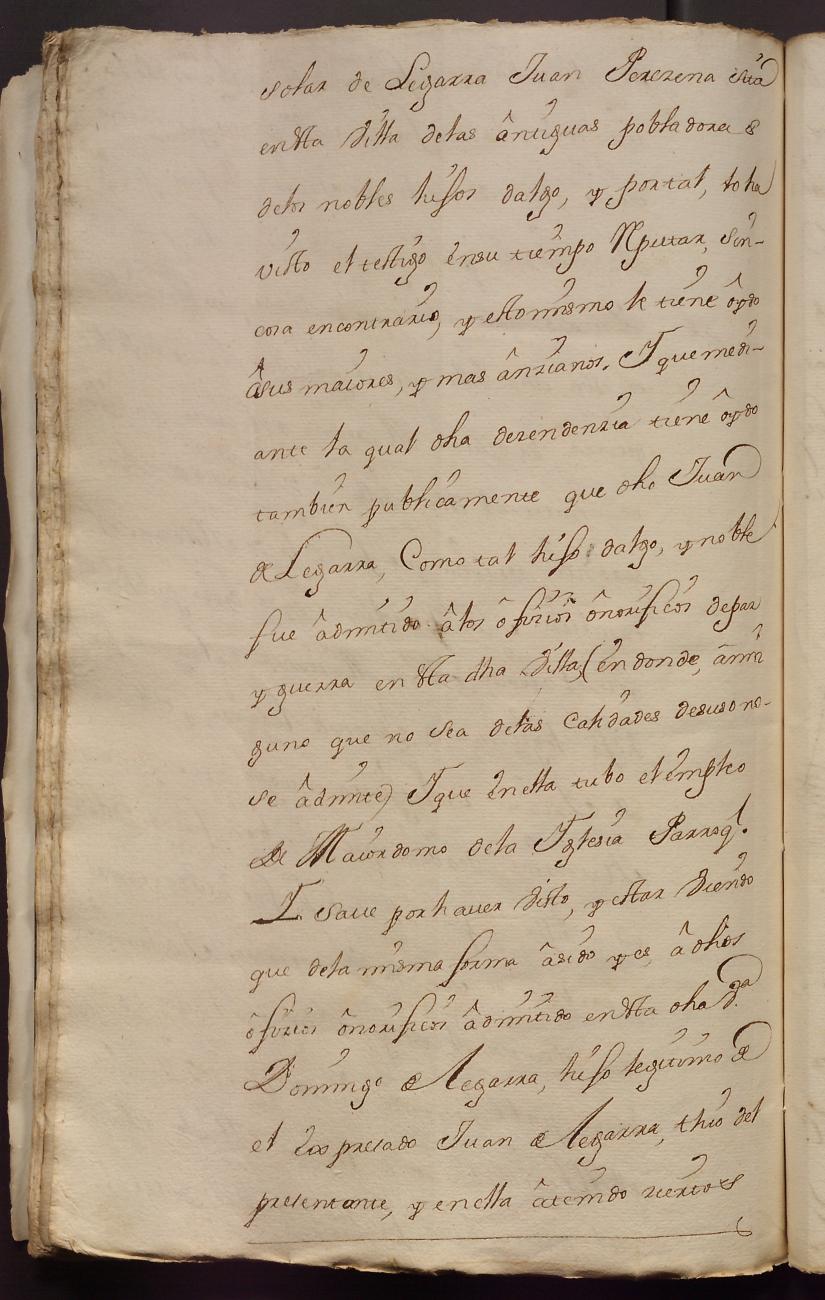 solar de Legarra Juan Pererena sita
en Sta Villa delas ântiguas pobladoras
delos nobles hisos dalgo, y portal, lo ha
visto el testigo ênsu tiempo Rputar, sin-
cosa encontrario, y esto mismo le tiene ôydo
âsus maiores, y mas ânzianos. Y que medi-
ante la qual dha dezendenzia tiene ôydo
tambien publicamente que dho Juan
de Legarra, Como tal hiso dalgo, y noble
fue âdmitido âlos ôfizios ônorificos depaz
y guerra en Sta dha Villa (en donde, ânin
guno que no sea delas Calidades desuso no-
se âdmite) Y que ênella tubo el êmpleo
de Maiordomo dela Yglesia Parroql.
Y. save por haver visto, y estar viendo
que dela misma forma âsido y es, âdhos
ôfizios ônorificos âdmitido en Sta dha Va.
Domingo de Legarra, hiso legitimo de
el Expresado Juan de Legarra, thio del
presentante, y en ella âtenido ziertos